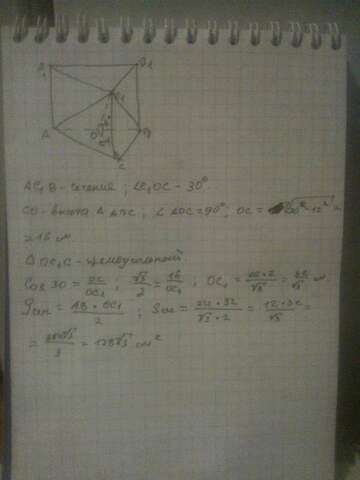 A₁ B₁
C₁
A O B
C
AC₁B - сечение; ∠C₁OC - 30°
CO - высота △ ABC; ∠ AOC = 90°; OC = √20² - 12² =
= 16 см
△ OC₁C - прямоугольный
Cos 30 = OC/OC₁; √3/2 = 16/OC₁; OC₁ = 16·2/√3 = 32/√3 см
Sсеч = AB · OC₁/2; Sсеч = 24·32/√3·2 = 12·32/√3 =
= 384√3/3 = 128√3 см²